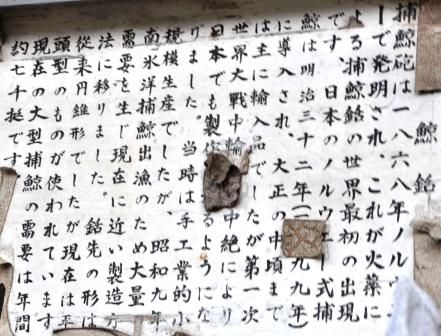 鯨銛
捕鯨砲は一八六八年ノルウ
ーで発明され、これが火薬に
よる捕鯨銛の世界最初の出現
です。日本のノルウェー式捕
鯨は明治三十二年(一九九年)
に導入され、大正の中頃まで
は主に輸入品でしたが第一次
世界大戦中輸中絶により
日本でも製作るようにな
りました。当時は手工業的小
規模生産でしたが、昭和九年
南氷洋捕鯨出漁のため大量
需要を生じ現在に近い製造方
法に移りました。銛先の形は
従来円錐形でしたが現在は平
頭型のものが使われています
現在の大型捕鯨の需要は年間
約七千挺です